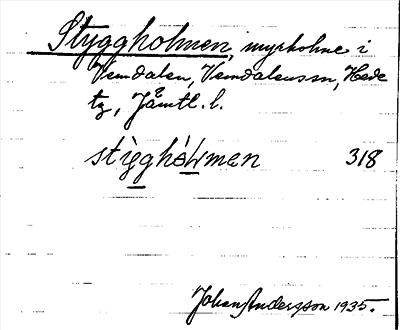 Styggholmen, myrholme i
Vemdalen, Vemdalens sn, Hede
tg, Jämtl. l.
stìgghól̀men 318
Johan Andersson 1935.